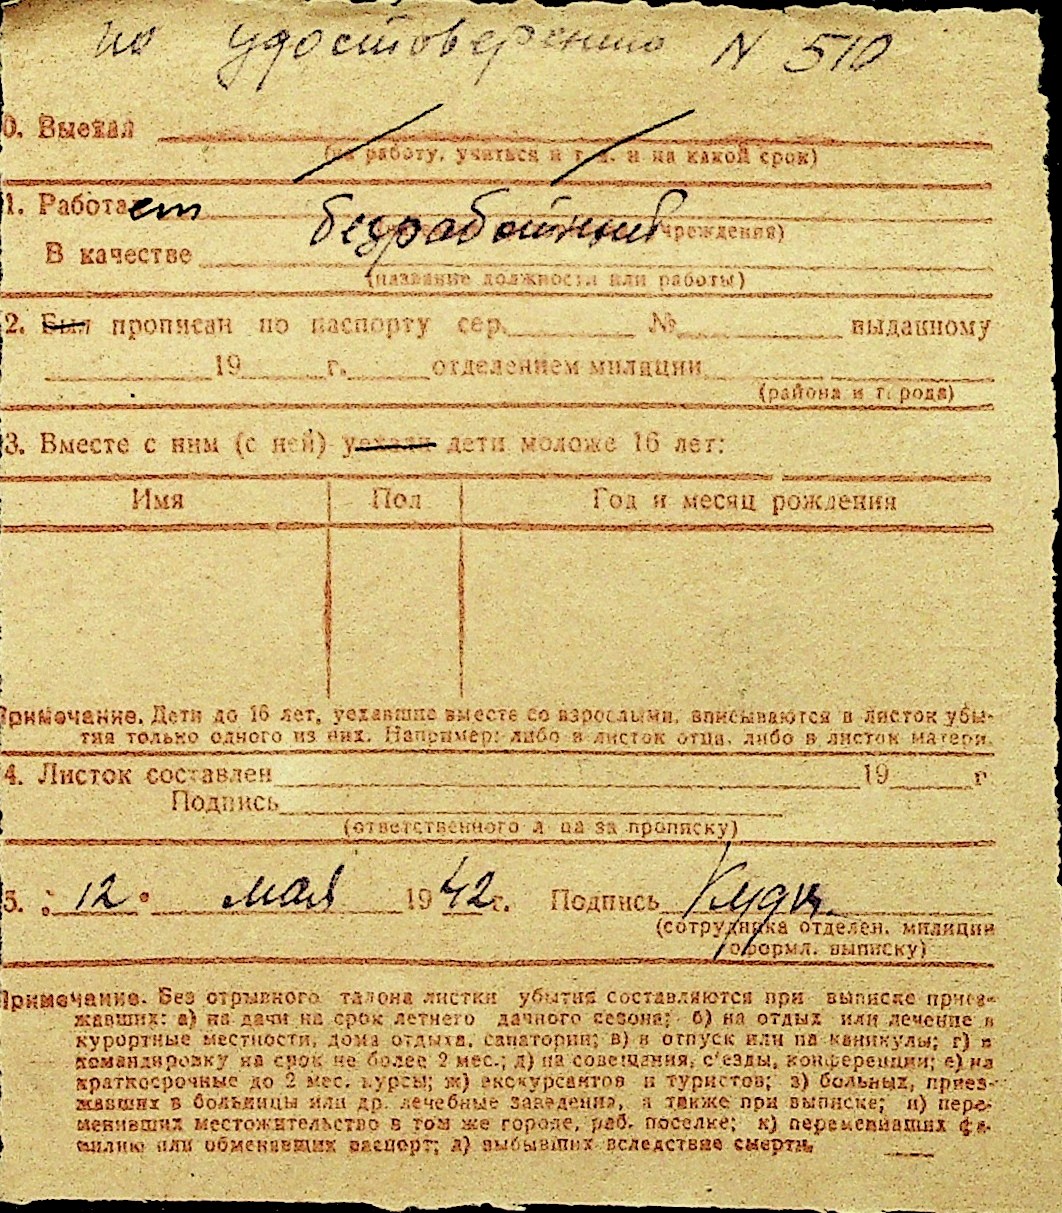 по удостоверению N 510
0. Выехал
(на работу, учиться и т. д. и на какой срок)
1. Работает безработный
чреждения)
В качестве
(название должности или работы)
2. Был прописан по паспорту сер. № выданному
19 г. отделением милиции
(района и города)
3. Вместе с ним (с ней) уехали дети моложе 16 лет:
Имя Пол Год и месяц рождения
Примечание. Дети до 16 лет, уехавшие вместе со взрослыми, вписываются в листок убы-
тия только одного из них. Например: либо в листок отца, либо в листок матери.
4. Листок составлен 19 г
Подпись
(ответственного лица за прописку)
5. „12" мая 1942 г. Подпись
(сотрудника отделен. милиции
оформл. выписку)
Примечание. Без отрывного талона листки убытия составляются при выписке приез-
жавших: а) на дачи на срок летнего дачного сезона; б) на отдых или лечение в
курортные местности, дома отдыха, санатории; в) в отпуск или на каникулы; г) в
командировку на срок не более 2 мес.; д) на совещания, с'езды, конференции; е) на
краткосрочные до 2 мес. курсы; ж) экскурсантов и туристов; з) больных, приез-
жавших в больницы или др. лечебные заведения, а также при выписке; и) пере-
менивших местожительство в том же городе, раб. поселке; к) переменивших фа-
милию или обменявших паспорт; л) выбывших вследствие смерти.